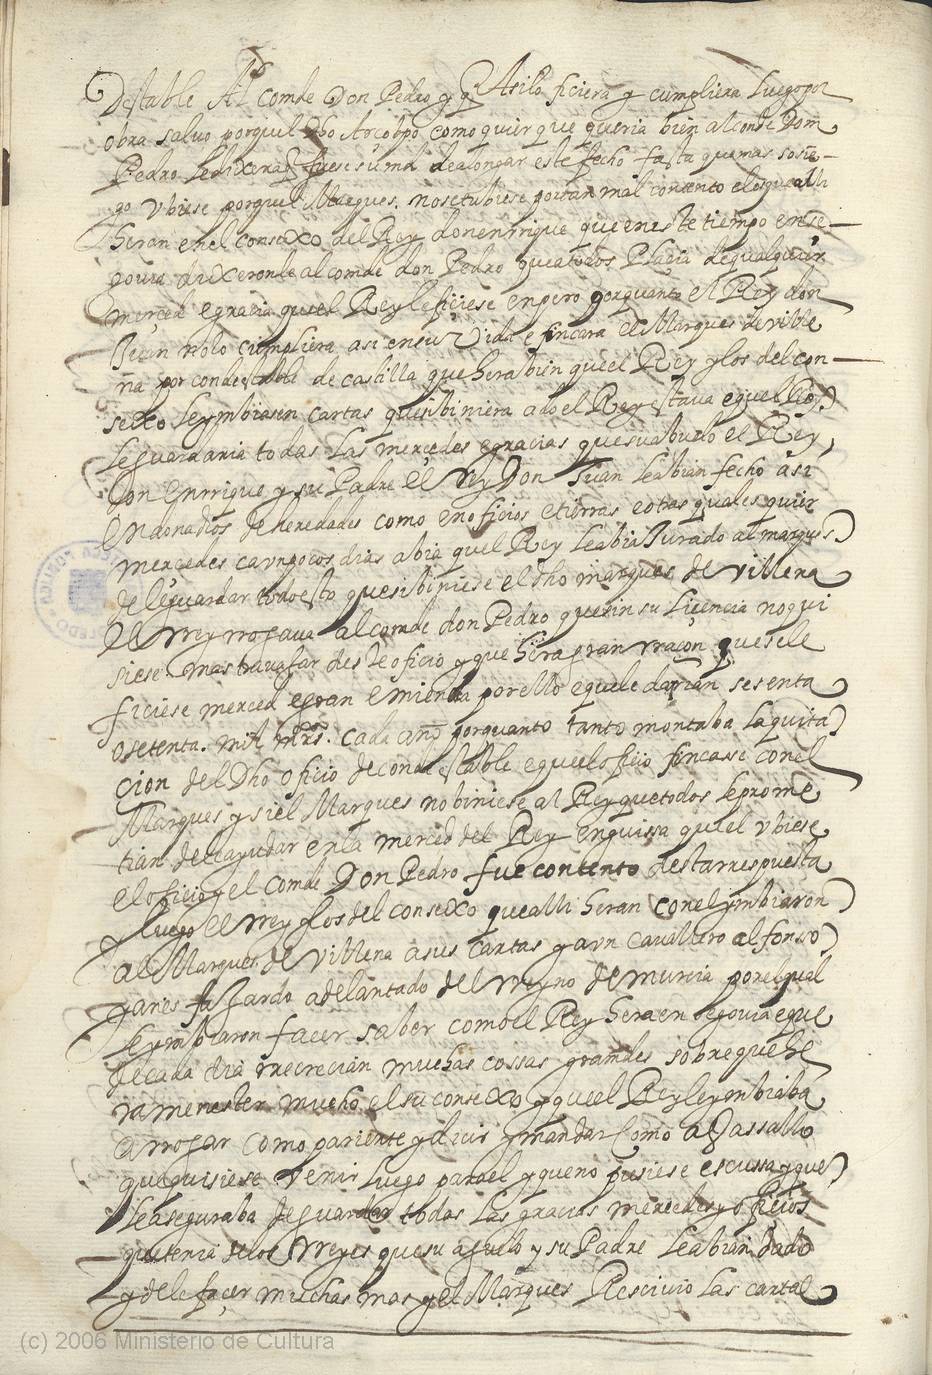 Destable Al conde Don Pedro y q Asilo ficiera y cumpliera luego por
obra salvo porquel dho Arçobpo como quier que queria bien al conde Dom
Pedro ledixera fuese su md dealongar este fecho fasta que mas sosie
go Vbiese porquel Marques. nosetubiese portan mal contento elosque alli
heran enel consexo del Rey donenrrique queneste tiempo en se
govia dixeronle alconde don Pedro que atodos Plaçia dequalquier
merced egracia quel Reylefiçiese enpero porquanto el Rey don
Juan nolo cumpliera asi ensu Vida e fincara el Marques deville
ña por condestable de castilla que hera bien quel Rey ylos del con
sexo leymbiasen cartas quesibiniera adoel Rey estava equellos
leguardaria todas las mercedes egracias quesuabuelo el Rey
Don Enrrique y su Padre el Rey Don Juan leabian fecho asi
endonadios deheredades como enofiçios etierras eotas quales quier
mercedes caunpocos dias abia quel Rey leabia Jurado almarques
deleguardar todoesto quesibiniese el dho marques de villena
El rrey rrogava alconde don Pedro quesin su Licencia noqui
siese mas travajar desteoficio y que hera gran rraçon quesele
ficiese merced egran emienda porello equele darian sesenta
osetenta. mill mrs. cada año porquanto tanto montaba laquita
cion del Dho oficio decondestable equelofiçio fincase conel
Marques ysiel Marques nobiniese al Rey quetodos leprome
tian deleayudar enla merced del Rey enguissa quel vbiese
eloficio yel conde Don Pedro fue contento destarrespuesta
y luego el rrey ylos del consexo quealli heran conel ymbiaron
alMarques de Villena asus cartas yaun cavallero alfonso
yañes faxardo adelantado del rreyno de murcia porelqual
leymbiaron facer saber comoel Rey heraen segovia eque
decada dia rrecrecian muchas cossas grandes sobrequehe
ra menester mucho elsu consexo yquel Rey leymbiaba
arrogar como pariente ydecir ymandar como aVassallo
quequisiese venir luego parael yqueno pusiese escussa yque
leaseguraba deguardar todas las gracias mercedes yofiçios
quetenia delos Rreyes quesu aguelo ysu Padre leabian dado
ydelefaçer muchas mas yel Marques Resciuio las cartas
(c) 2006 Ministerio de Cultura